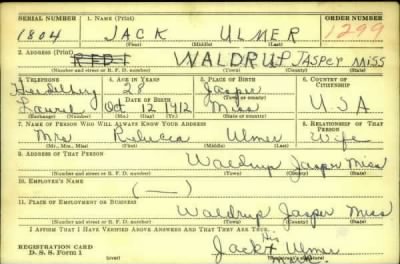 SERIAL NUMBER 1. NAME (Print) ORDER NUMBER
1804 JACK ULMER 1299
(First) (Middle) (Last)
2. ADDRESS (Print)
R.F.D. 1 WALDRUP JASPER MISS
(Number and street or R. F. D. number) (Town) (County) (State)
3. TELEPHONE 4. AGE IN YEARS 5. PLACE OF BIRTH 6. COUNTRY OF CITIZENSHIP
Heidelberg 28 Jasper
DATE OF BIRTH
Laurel Oct 12 1912 Miss USA
(Exchange) (Number) (Mo.) (Day) (Yr.) (State or country)
7. NAME OF PERSON WHO WILL ALWAYS KNOW YOUR ADDRESS 8. RELATIONSHIP OF THAT PERSON
Mrs Rebecca Ulmer Wife
(Mr., Mrs., Miss) (First) (Middle) (Last)
9. ADDRESS OF THAT PERSON
Waldrup Jasper Miss
(Number and street or R. F. D. number) (Town) (County) (State)
10. EMPLOYER'S NAME
(—)
11. PLACE OF EMPLOYMENT OR BUSINESS
Waldrup Jasper Miss
(Number and street or R. F. D. number) (Town) (County) (State)
I AFFIRM THAT I HAVE VERIFIED ABOVE ANSWERS AND THAT THEY ARE TRUE.
His
REGISTRATION CARD Jack X Ulmer
D. S. S. Form 1 (over) Mark